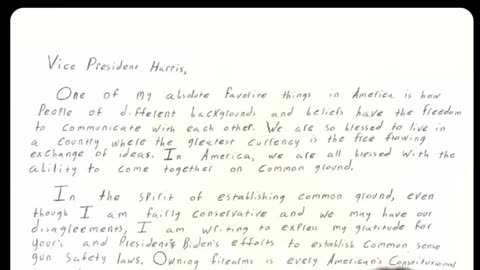 Vice President Harris,
One of my absolute favorite things in America is how
People of different backgrounds and beliefs have the freedom
to communicate with each other. We are so blessed to live in
a Country where the greatest Currency is the free flowing
exchange of ideas. In America, we are all blessed with the
ability to come together on Common ground.
In the spirit of establishing common ground, even
though I am fairly conservative and we may have our
disagreements, I am writing to express my gratitude for
Your's and President's Biden's efforts to establish Common sense
gun Safety laws. Owning firearms is every American's Constitutional